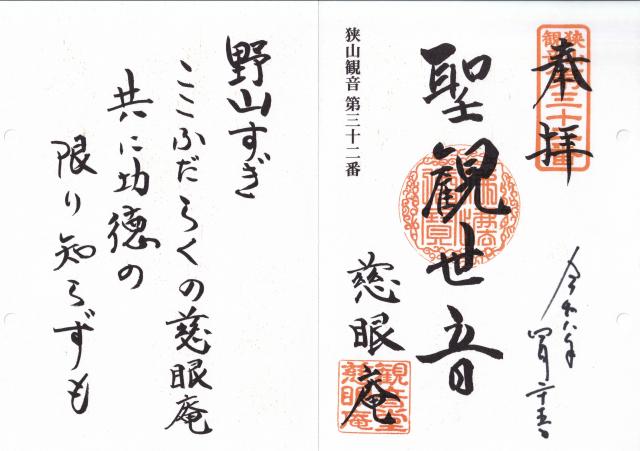 奉拝
狭山観音 第三十二番
聖観世音
慈眼庵
観音堂
慈眼庵
令和八年
野山すぎ
ここふだらくの慈眼庵
共に功徳の
限り知らずも